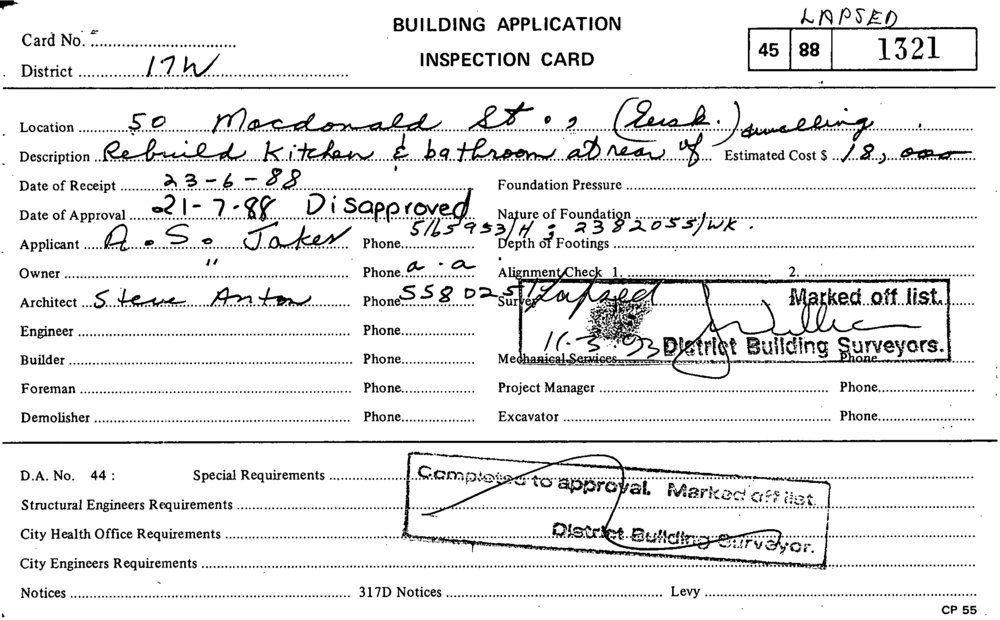 LAPSED
BUILDING APPLICATION
INSPECTION CARD
Card No.
45 88 1321
District 17W
Location 50 Macdonald St., (Ersk.) dwelling
Description Rebuild Kitchen & bathroom at rear of Estimated Cost $ 18,000
Date of Receipt 23-6-88 Foundation Pressure
Date of Approval 21-7-88 Disapproved Nature of Foundation
Applicant A. S. Jakes Phone 5165953/H ; 2382055/WK. Depth of Footings
Owner " Phone a.a Alignment Check 1. 2.
Architect Steve Anton Phone 5580251 Survey
Lapsed Marked off list.
Engineer Phone
11-3-93 District Building Surveyors.
Builder Phone Mechanical Services Phone
Foreman Phone Project Manager Phone
Demolisher Phone Excavator Phone
D.A. No. 44 : Special Requirements
Completed to approval. Marked off list.
Structural Engineers Requirements
City Health Office Requirements
District Building Surveyor.
City Engineers Requirements
Notices 317D Notices Levy
CP 55